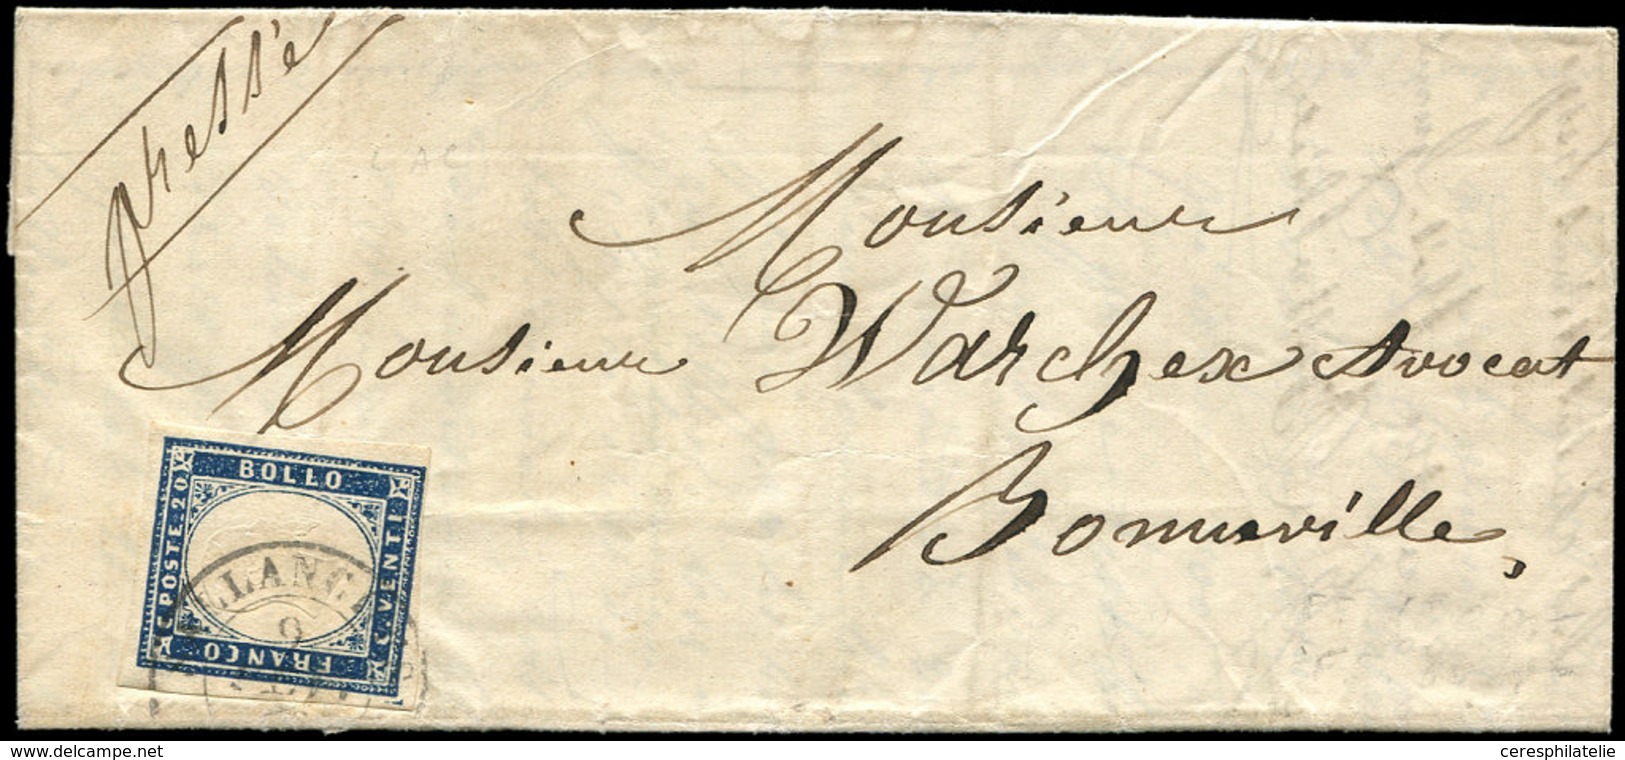 pressée
LAC
Monsieur
Monsieur Warchex Avocat
Bonneville,
BOLLO
C. POSTE 20
C. VENTI
FRANCO
9
www.delcampe.net
ceresphilatelie